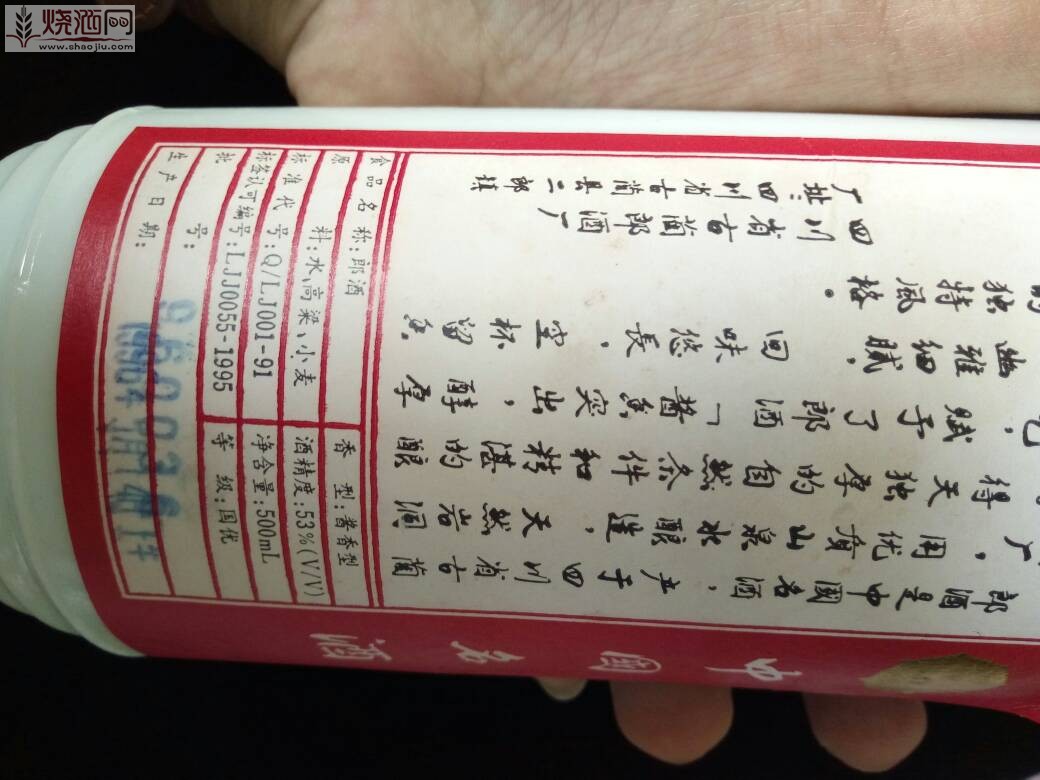 烧酒网
www.shaojiu.com
中國名酒
郎酒是中國名酒，产于四川省古蔺
厂，用优质山泉水酿造，天然岩洞
得天独厚的自然条件和精湛的酿
赋予了郎酒「酱香突出，醇厚
幽雅细腻，回味悠長，空杯留香。
的独特風格。
四川省古蔺郎酒厂
厂址：四川省古蔺县二郎镇
食品名称：郎酒
香型：酱香型
原料：水、高粱、小麦
酒精度：53%(V/V)
标准代号：Q/LJ001-91
净含量：500mL
标签认可编号：LJJ0055-1995
等级：国优
批号：
生产日期：